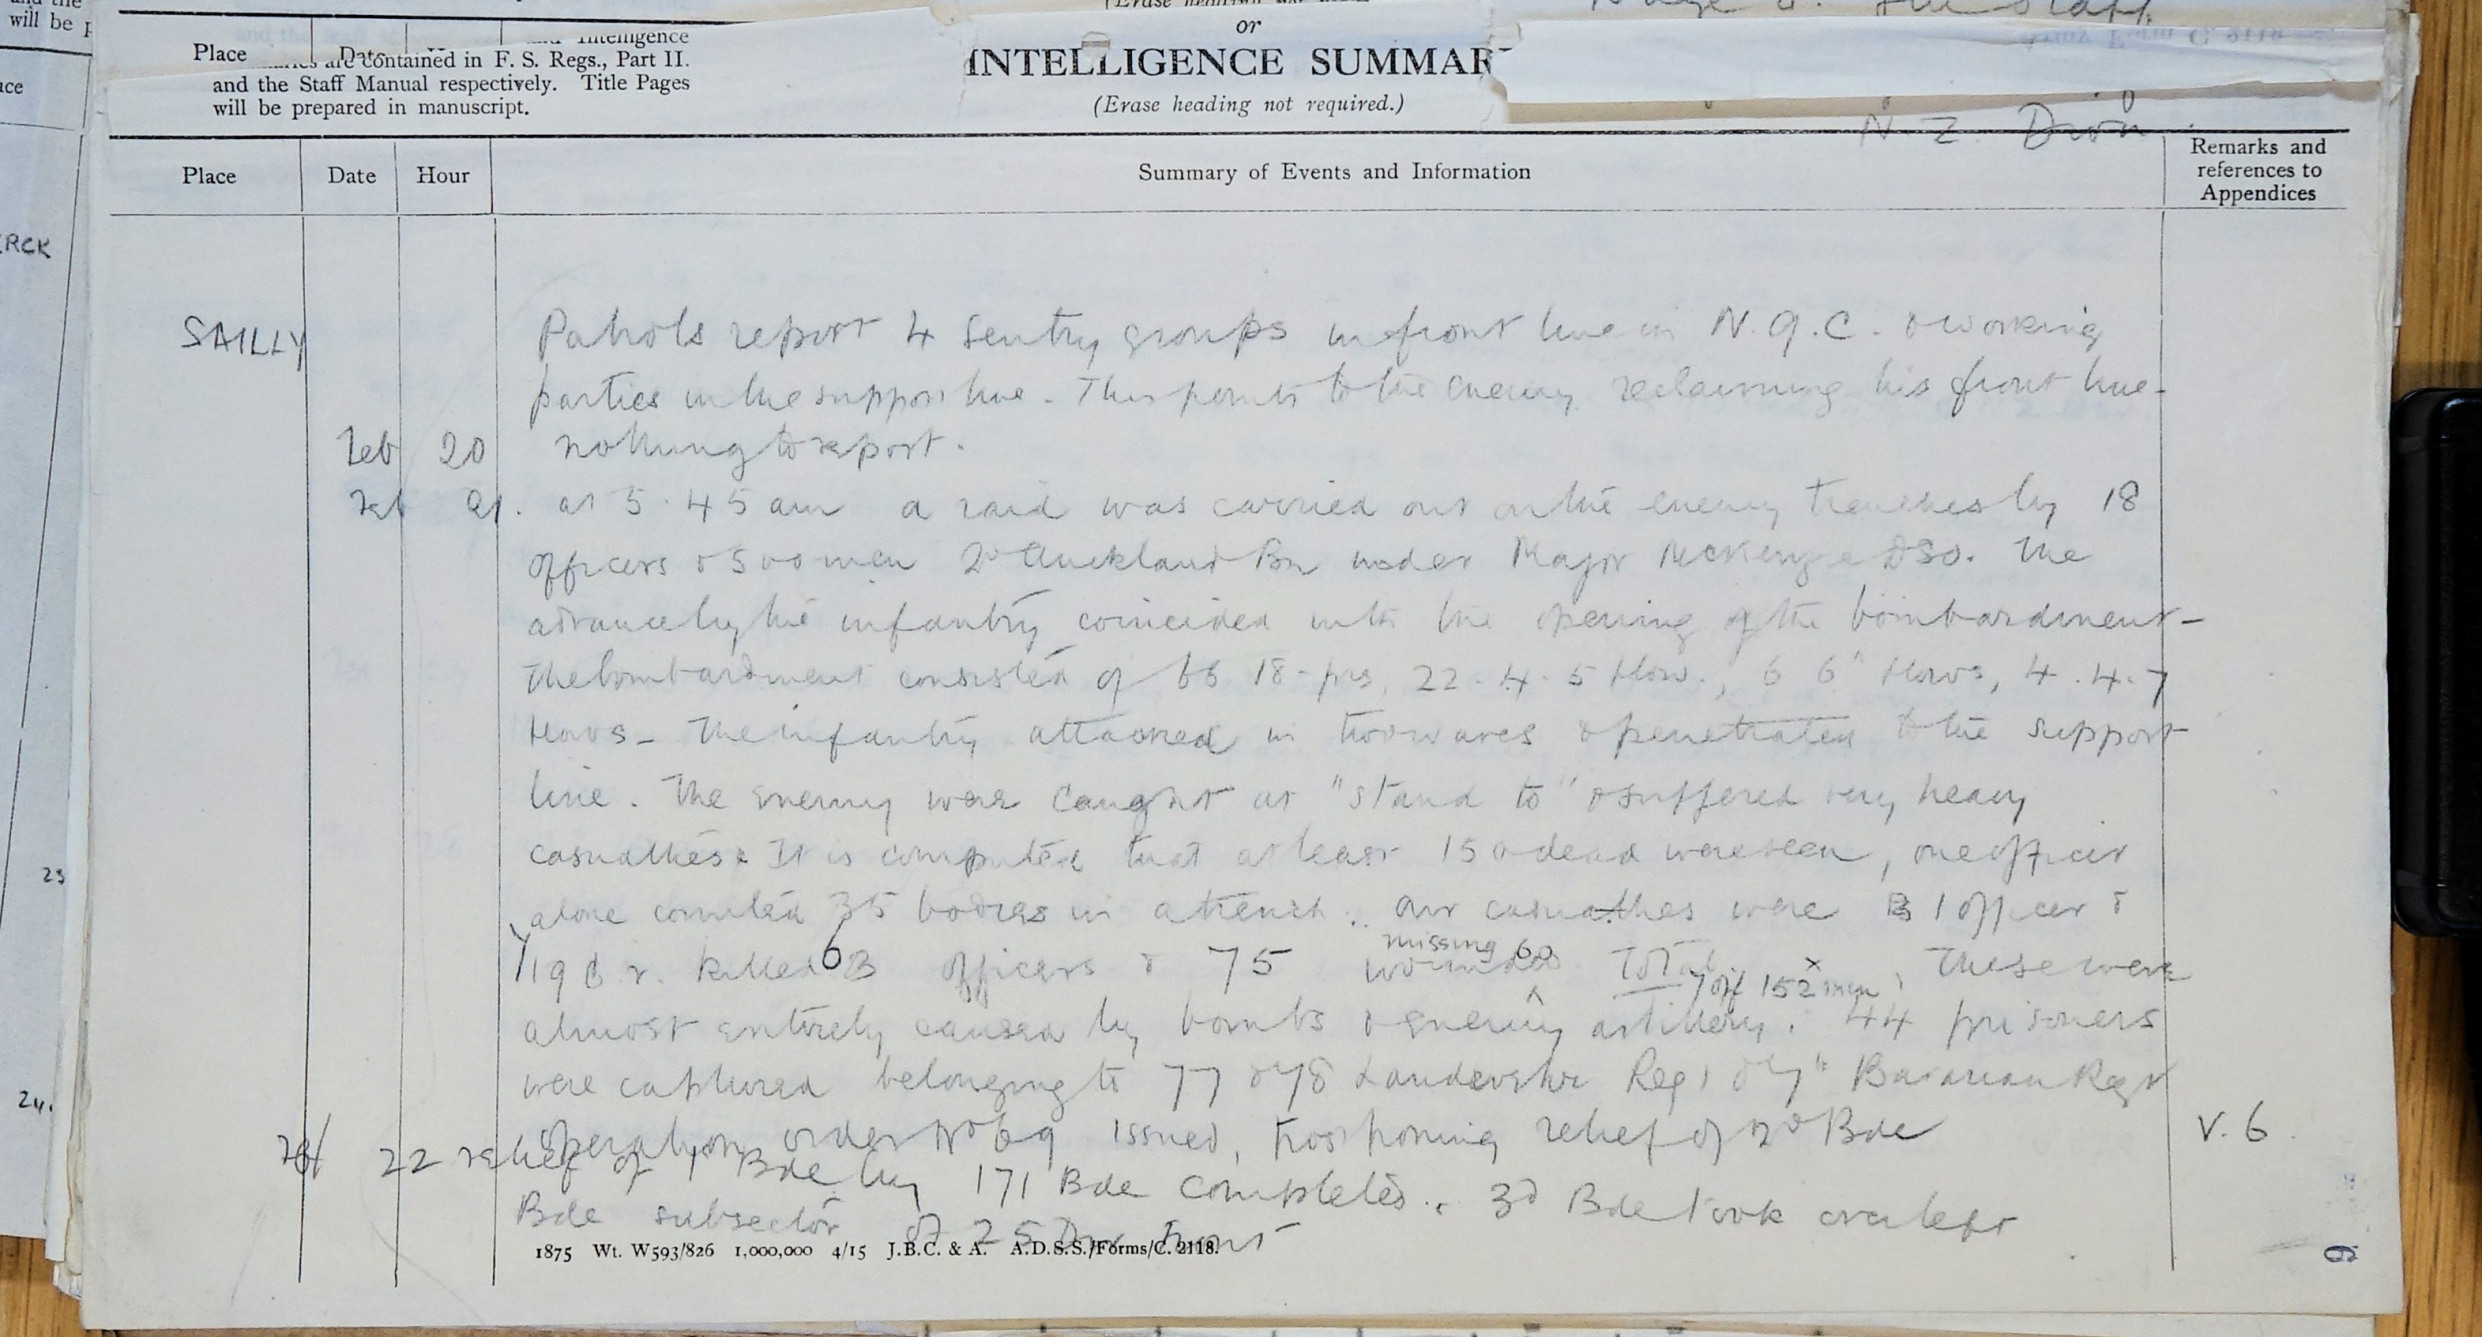 and the
will be p
ace
ERCK
23
24.
(Erase heading not
or
INTELLIGENCE SUMMAR
(Erase heading not required.)
Place Date Intelligence
are contained in F. S. Regs., Part II.
and the Staff Manual respectively. Title Pages
will be prepared in manuscript.
N. Z. Divn.
Place Date Hour Summary of Events and Information Remarks and
references to
Appendices
SAILLY Patrols report 4 Sentry groups in front line in N.9.C. & working
parties in the support line. This points to the enemy reclaiming his front line.
Feb 20 nothing to report.
Feb 21. at 5.45 am a raid was carried out on the enemy trenches by 18
officers & 500 men 2d Auckland Bn under Major McKenzie DSO. The
advance by the infantry coincided with the opening of the bombardment -
The bombardment consisted of 18-prs, 22 - 4.5 How., 6 6" Hows, 4. 4.7
Hows - The infantry attacked in two waves & penetrated to the support
line. The enemy were caught at "stand to" & suffered very heavy
casualties. It is computed that at least 150 dead were seen, one officer
alone counted 35 bodies in a trench. Our casualties were 1 officer &
19 killed 6 officers & 75 wounded missing 60 Total 7 off 152 men. These were
almost entirely caused by bombs & enemy artillery. 44 prisoners
were captured belonging to 77 & 78 Landwehr Regt & Bavarian Regt
operation order No 69 issued, postponing relief of 2d Bde V.6
22 relief of 1st Bde by 171 Bde completed. 3d Bde took over left
Bde subsector of 25 Div front
1875 Wt. W593/826 1,000,000 4/15 J.B.C. & A. A.D.S.S./Forms/C. 2118.
9